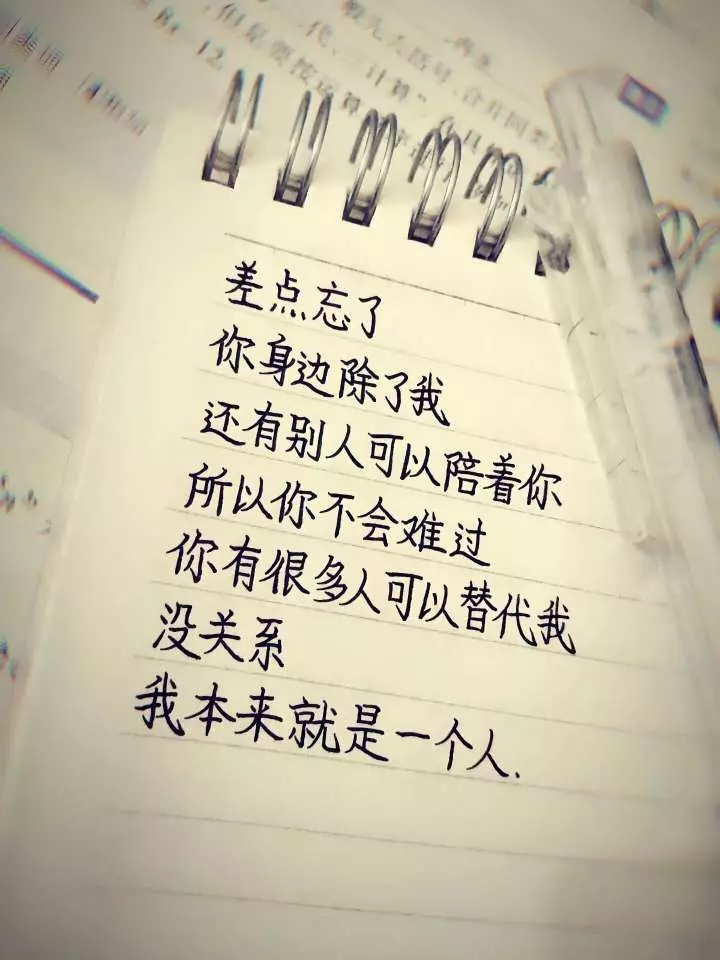 差点忘了
你身边除了我
还有别人可以陪着你
所以你不会难过
你有很多人可以替代我
没关系
我本来就是一个人.